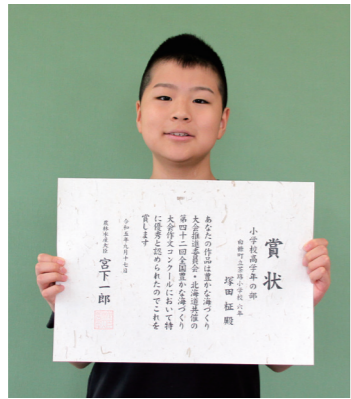 賞状
小学校高学年の部
白糠町立茶路小学校 六年
塚田 柾 殿
あなたの作品は豊かな海づくり
大会推進委員会・北海道共催の
第四十二回全国豊かな海づくり
大会作文コンクールにおいて特
に優秀と認められたのでこれを
賞します
令和五年九月十七日
農林水産大臣 宮下一郎